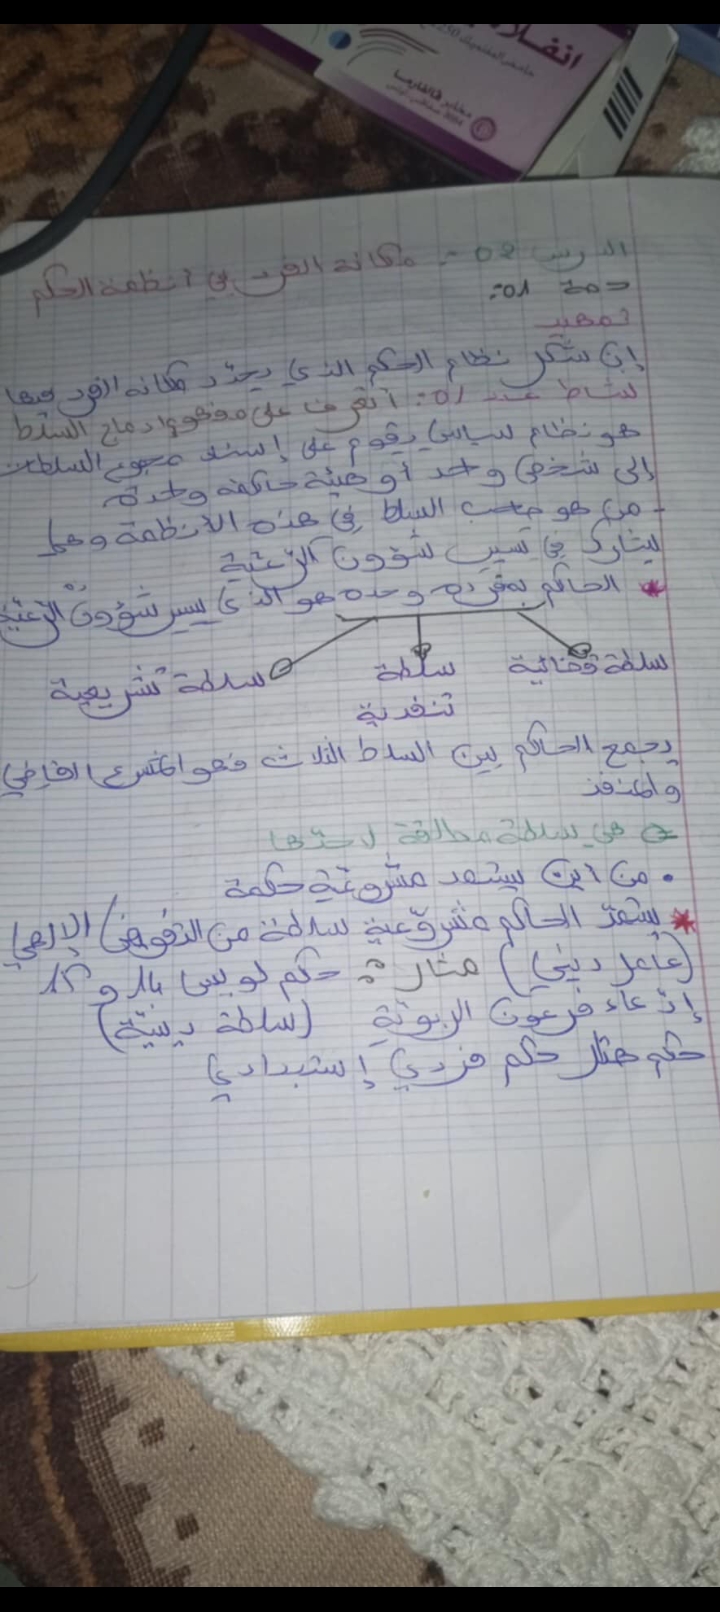 انفلا
مخابر
الدرس 02: مكانة الفرد في أنظمة الحكم
حصة 01:
تمهيد
إن شكل نظام الحكم الذي يحدد مكانة الفرد فيها
نشاط عدد 01: أتعرف على مفهوم إدماج السلط
هو نظام سياسي يقوم على إسناد مجموع السلطات
إلى شخص واحد أو هيئة حاكمة واحدة
- من هو صاحب السلط في هذه الأنظمة وهل
يشارك في تسيير شؤون الرّعيّة
* الحاكم بمفرده وحده هو الذي يسير شؤون الرّعيّة
سلطة قضائية
سلطة تنفدية
سلطة تشريعية
يجمع الحاكم بين السلط الثلاث فهو المشرع القاضي
والمنفذ
هي سلطة مطلقة لا حدّ لها
• من أين يستمد مشروعيّة حكمة
* يستمدّ الحاكم مشروّعية سلطة من التفويض الإلاهي
(عامل ديني) مثال: حكم لويس 14 و 15
إدّعاء فرعون الربوبيّة (سلطة دينيّة)
حكم هتلر حكم فردي إستبدادي